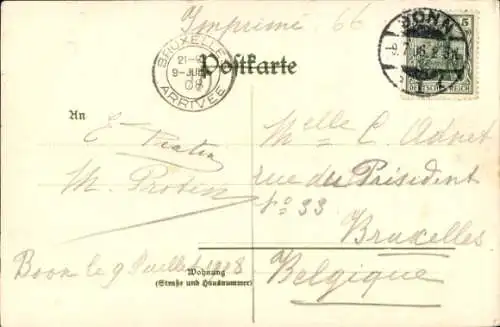 Imprimé 66
BONN
9.7.08
5
DEUTSCHES REICH
BRUXELLES
9-JUIL
08
ARRIVÉE
Postkarte
An
Melle C. Adnet
rue du Président
No 33
Bruxelles
Belgique
E
M.
Bonn le 9 Juillet 1908
Wohnung
(Straße und Hausnummer)